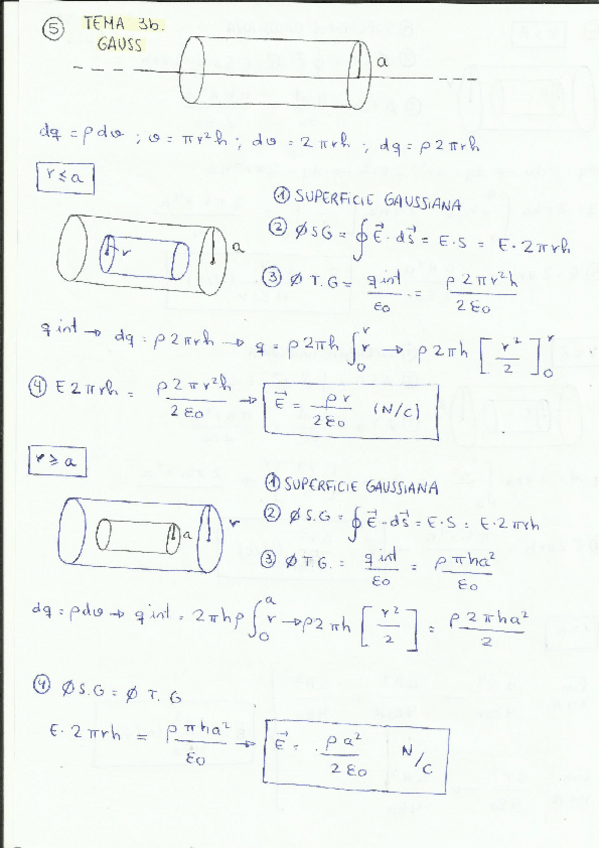 ⑤ TEMA 3b.
GAUSS
a
dq = ρ dv ; v = πr²h ; dv = 2πrh ; dq = ρ2πrh
r ≤ a
① SUPERFICIE GAUSSIANA
② ∅ S.G = ∮ E⃗ · ds⃗ = E · S = E · 2πrh
r
a
③ ∅ T.G. = q int / ε₀ = ρ2πr²h / 2ε₀
q int → dq = ρ2πrh → q = ρ2πh ∫₀ʳ r → ρ2πh [r²/2]₀ʳ
④ E2πrh = ρ2πr²h / 2ε₀ → E⃗ = ρr / 2ε₀ (N/C)
r ≥ a
① SUPERFICIE GAUSSIANA
② ∅ S.G = ∮ E⃗ · ds⃗ = E · S = E · 2πrh
a
r
③ ∅ T.G. = q int / ε₀ = ρπha² / ε₀
dq = ρdv → q int = 2πhρ ∫₀ᵃ r → ρ2πh [r²/2] = ρ2πha² / 2
④ ∅ S.G = ∅ T.G
E · 2πrh = ρπha² / ε₀ → E⃗ = ρa² / 2ε₀ N/C